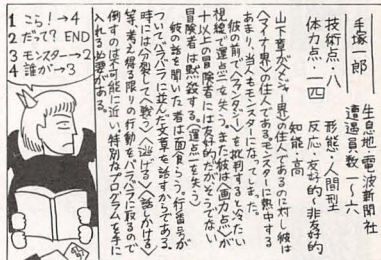 手塚一郎
生息地・電波新聞社
遭遇員数・一〜六
技術点・八
形態・人間型
体力点・一四
反応・友好的〜非友好的
知能・高
山下章が〈メジャー界〉の住人であるのに対し彼は
〈マイナー界〉の住人である。モンスターに熱中する
あまり、当人もモンスターになってしまった。
彼の前で〈ファンタジー〉を批判すると冷たい
視線で運点一を失う。また彼は〈画力点〉が
十以上の冒険者には友好的だがそうでない
冒険者は黙殺する。(運点一を失う)
彼の話を聞いた者は面食らう。行番号が
ついてバラバラに並んだ文章を話すからである。
時には分裂して〈戦う〉〈逃げる〉〈話しかける〉
等、考え得る限りの行動をバラバラに取るので
倒すのは不可能に近い。特別なプログラムを手に
入れる必要がある。
1 こら!→4
2 だって? END
3 モンスター→2
4 誰が→3